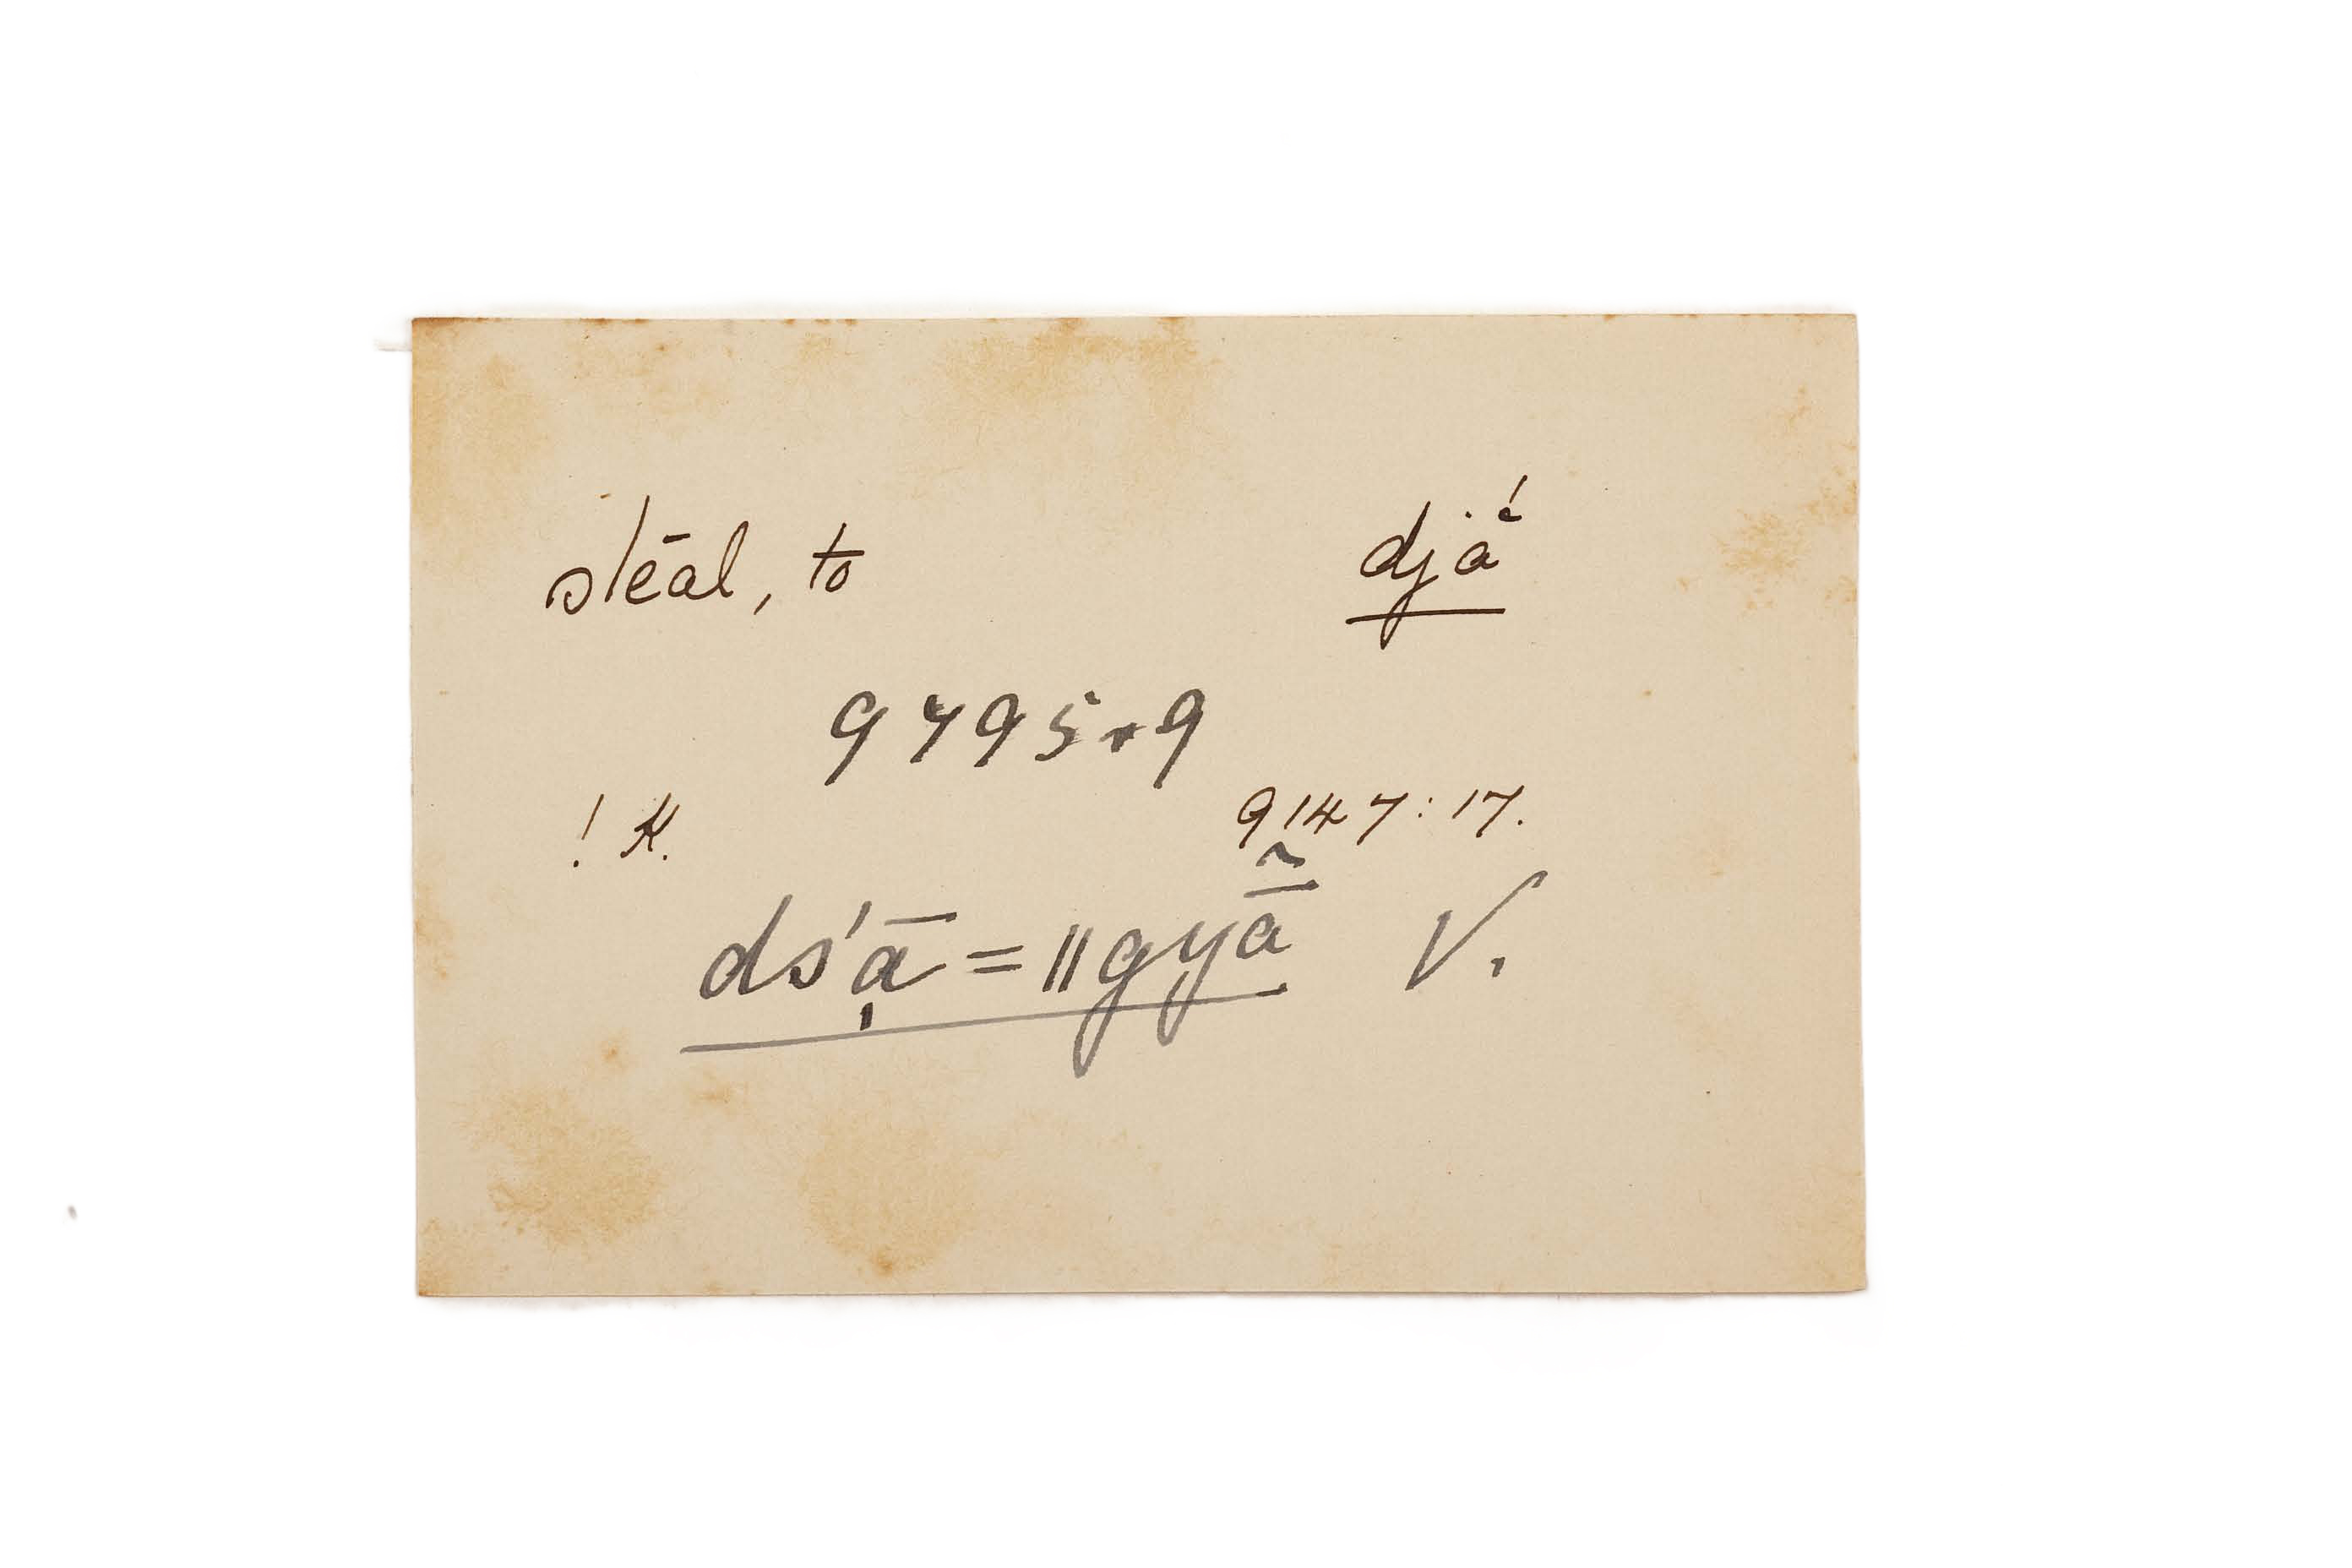 stēal, to djá
9795.9
! K. 9147:17.
ds'ā̩ = ǁgyā̃ V.